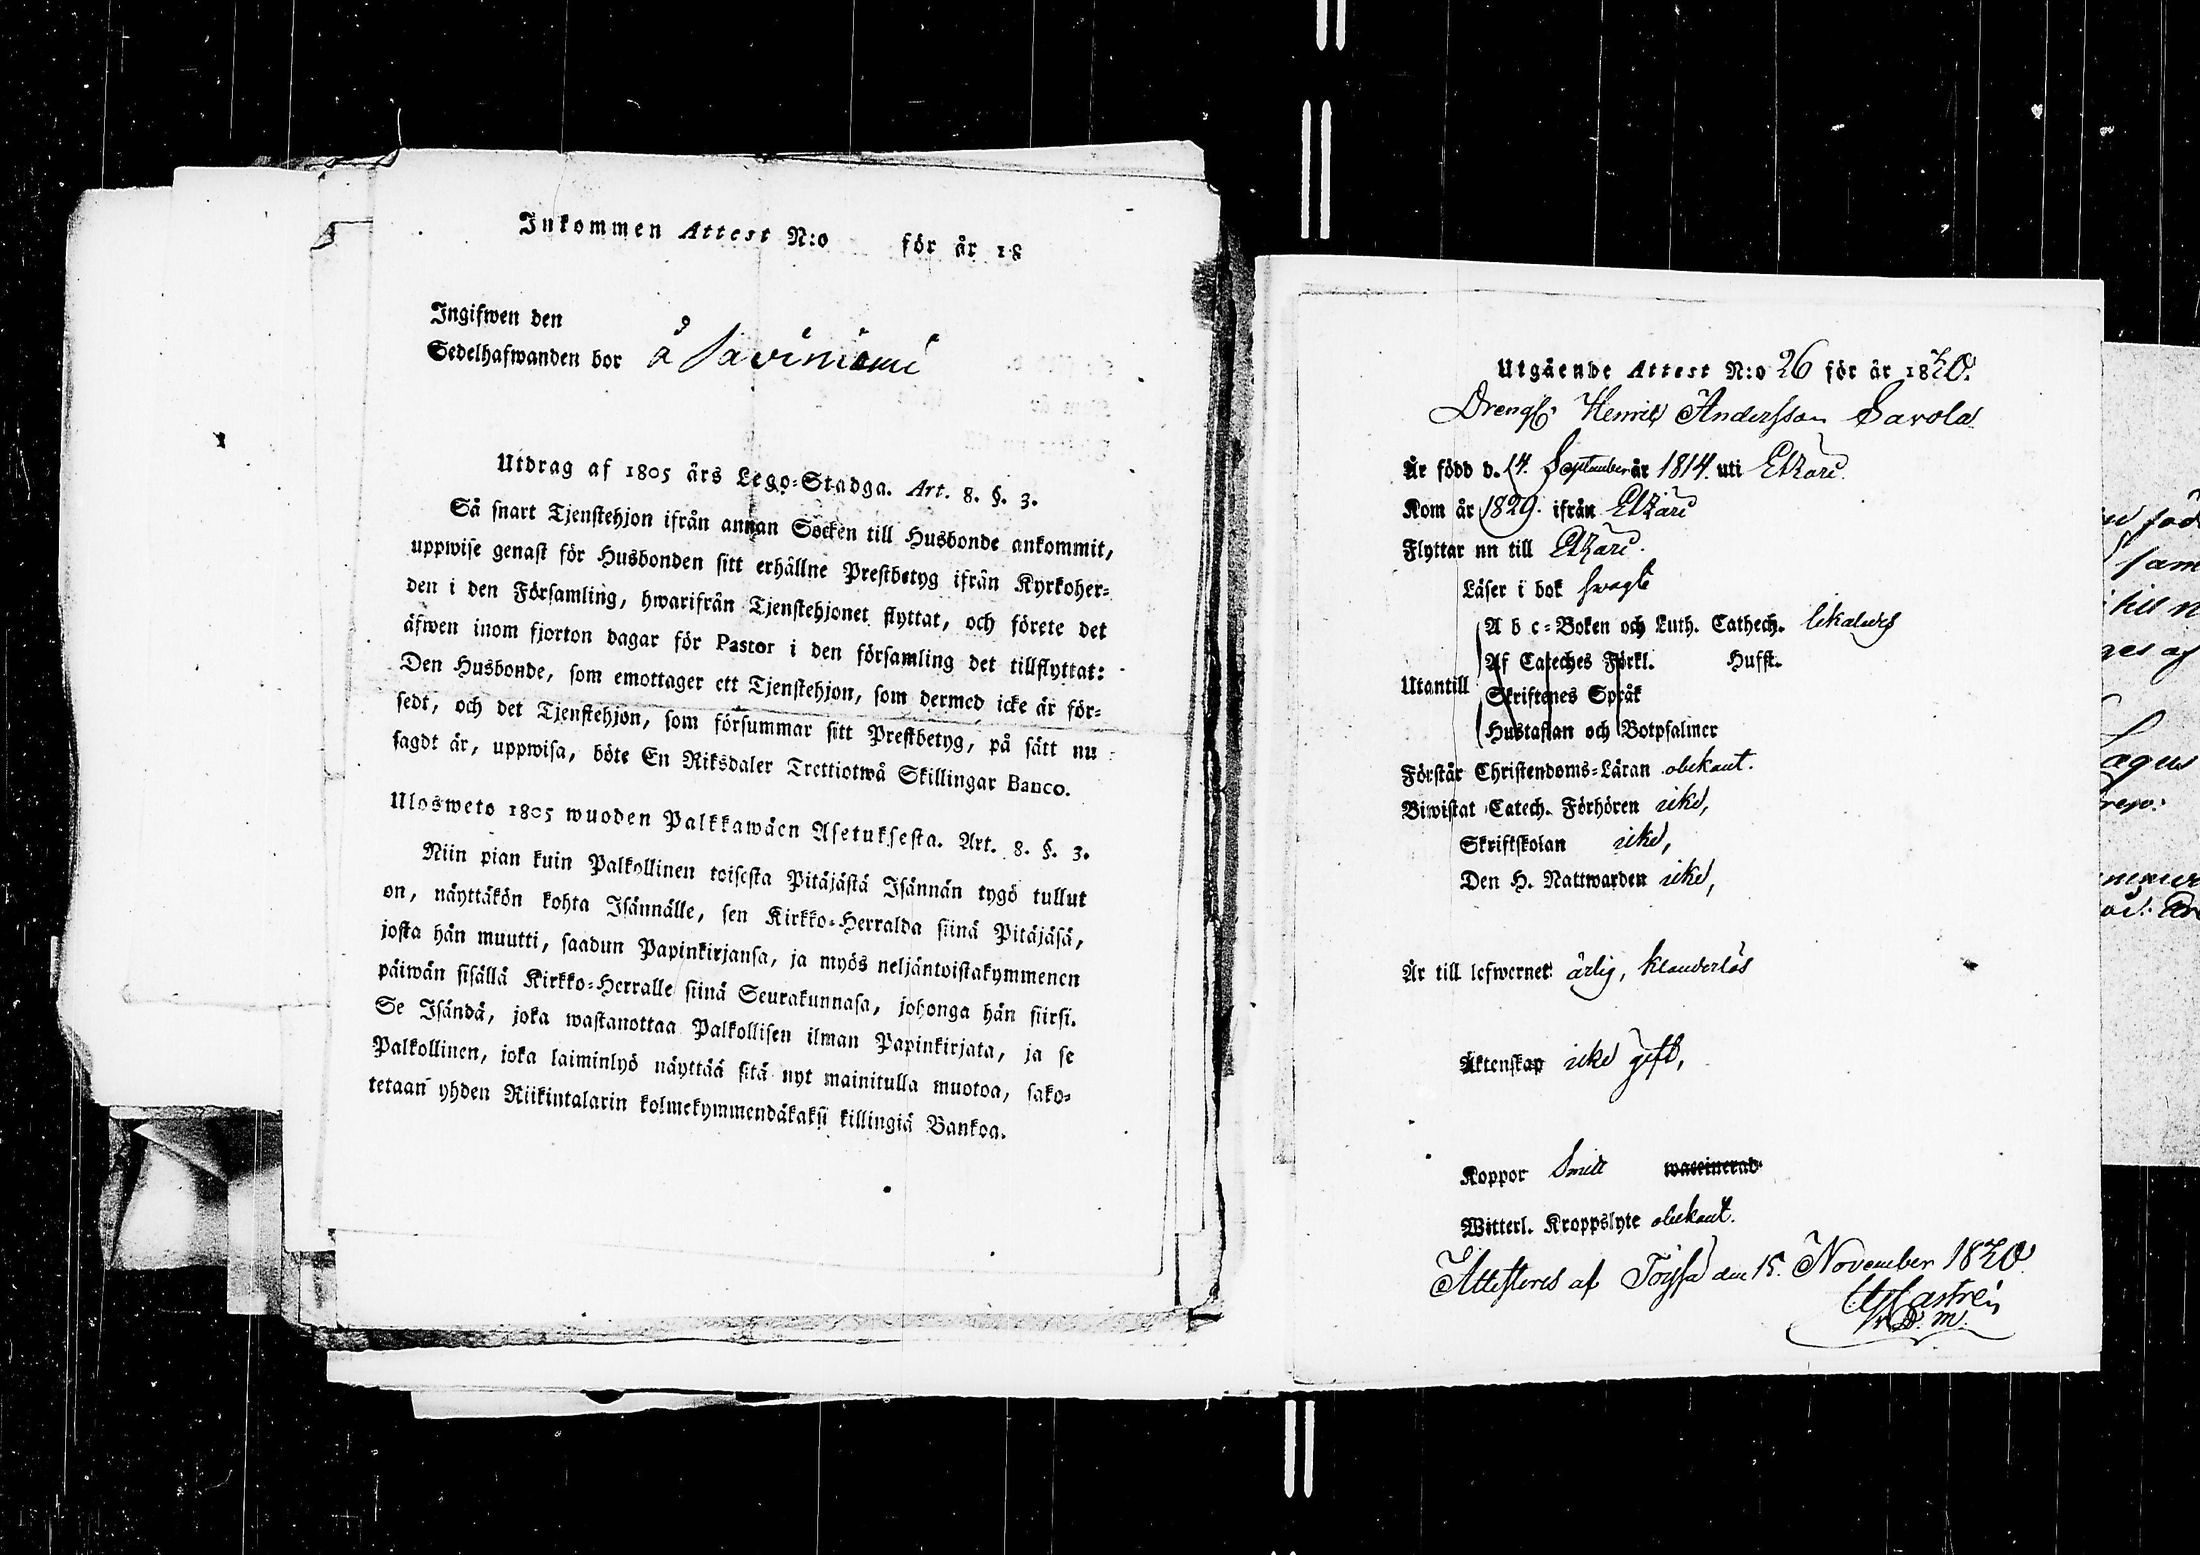 Inkommen Attest N:o för år 18
Ingifwen den
Sedelhafwanden bor å Saviniemi
Utdrag af 1805 års Lego-Stadga. Art. 8. §. 3.
Så snart Tjenstehjon ifrån annan Socken till Husbonde ankommit,
uppwise genast för Husbonden sitt erhållne Prestbetyg ifrån Kyrkoher-
den i den Församling, hwarifrån Tjenstehjonet flyttat, och förete det
äfwen inom fjorton dagar för Pastor i den församling det tillflyttat:
Den Husbonde, som emottager ett Tjenstehjon, som dermed icke är för-
sedt, och det Tjenstehjon, som försummar sitt Prestbetyg, på sätt nu
sagdt är, uppwisa, böte En Riksdaler Trettiotwå Skillingar Banco.
Ulosweto 1805 wuoden Palkkawäen Asetuksesta. Art. 8. §. 3.
Niin pian kuin Palkollinen toisesta Pitäjästä Isännän tygö tullut
on, näyttäkön kohta Isännälle, sen Kirkko-Herralda siinä Pitäjäsä,
josta hän muutti, saadun Papinkirjansa, ja myös neljäntoistakymmenen
päiwän sisällä Kirkko-Herralle siinä Seurakunnasa, johonga hän siirsi.
Se Isändä, joka wastanottaa Palkollisen ilman Papinkirjata, ja se
Palkollinen, joka laiminlyö näyttää sitä nyt mainitulla muotoa, sako-
tetaan yhden Riikintalarin kolmekymmendäkaksi killingiä Bankoa.
Utgående Attest N:o 26 för år 1830.
Drengs. Henrik Andersson Savola
Är född d. 14. September år 1814. uti Etzäri.
Kom år 1829. ifrån Etzäri
Flyttar nu till Etzäri.
Läser i bok svagt
A b c-Boken och Luth. Cathech.
Af Cateches Förkl. Hufst.
Utantill
Skriftenes Språk
Hustaflan och Botpsalmer
Förstår Christendoms-Läran obekant.
Biwistat Catech. Förhören icke,
Skriftskolan icke,
Den H. Nattwarden icke,
Är till lefwernet ärlig, klanderlös
Äktenskap icke gift,
Koppor waccinerad
Witterl. Kroppslyte obekant.
Attesteras af Töysä den 15. November 1830
Castrén